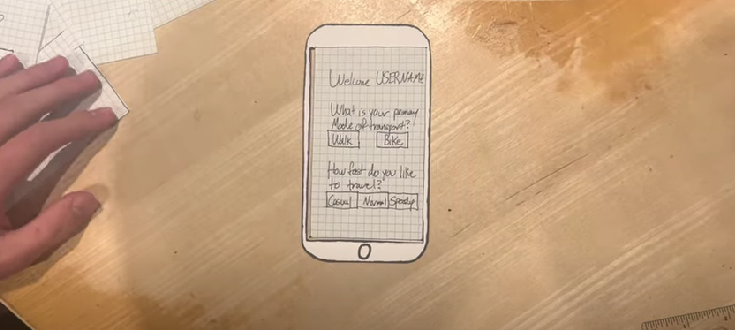 Welcome USERNAME
What is your primary
Mode of transport?
Walk Bike
How fast do you like
to travel?
Casual Normal Speedy